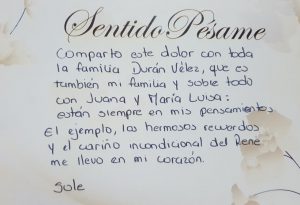 Sentido Pésame
Comparto este dolor con toda
la familia Durán Vélez, que es
también mi familia y sobre todo
con Juana y María Luisa:
están siempre en mis pensamientos.
El ejemplo, los hermosos recuerdos
y el cariño incondicional del René
me llevo en mi corazón.
Sole